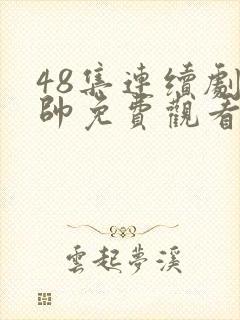 48集連續劇
帥免費觀看
雲起夢溪